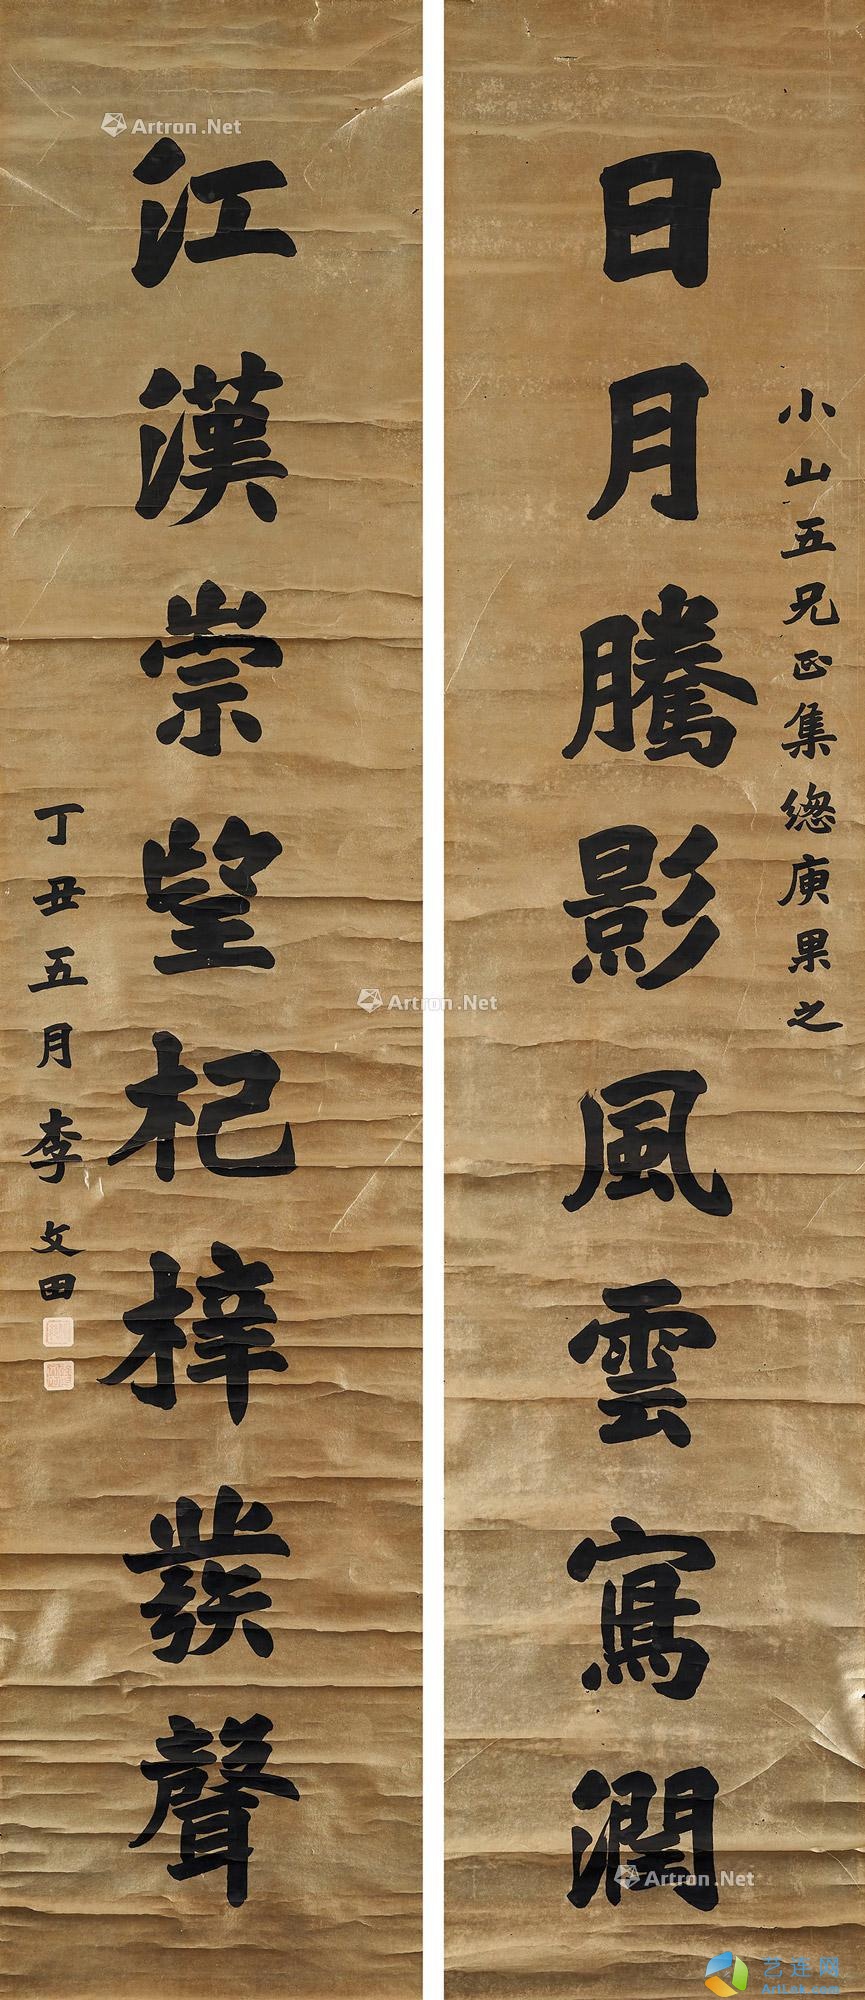 小山五兄正集總庾果之
日月騰影風雲寫潤
江漢崇望杞梓發聲
丁丑五月李文田
Artron.Net
Artron.Net
Artron.Net
艺连网
ArtLnk.com